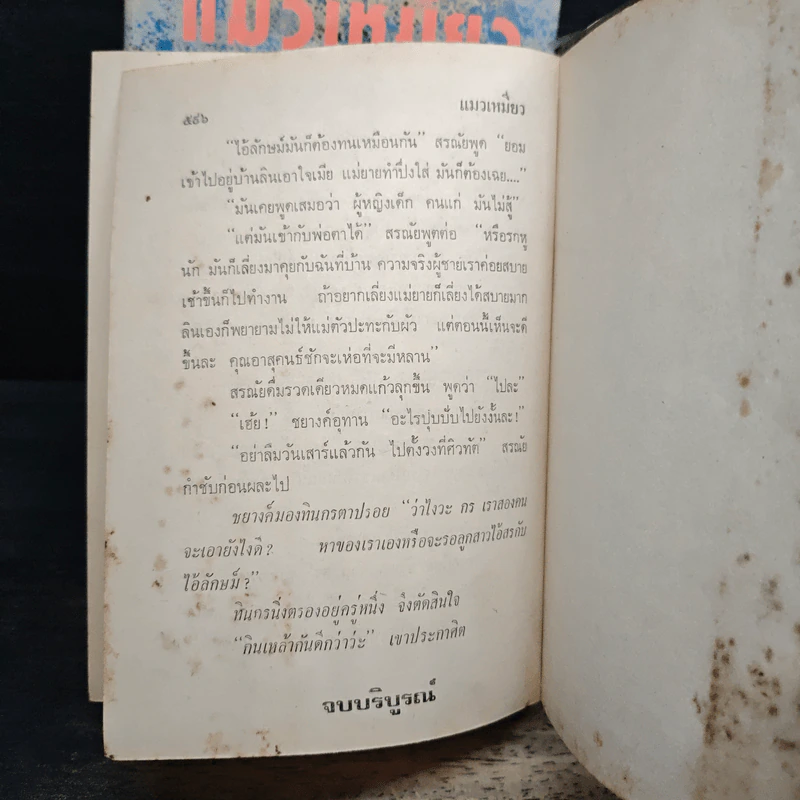 แมวเหมียว
๕๙๖
แมวเหมียว
“ไอ้ลักษม์มันก็ต้องทนเหมือนกัน” สรณัยพูด “ยอม
เข้าไปอยู่บ้านลินเอาใจเมีย แม่ยายทำปึ่งใส่ มันก็ต้องเฉย....”
“มันเคยพูดเสมอว่า ผู้หญิงเด็ก คนแก่ มันไม่สู้”
“แต่มันเข้ากับพ่อตาได้” สรณัยพูดต่อ “หรือรกหู
นัก มันก็เลี่ยงมาคุยกับฉันที่บ้าน ความจริงผู้ชายเราค่อยสบาย
เช้าขึ้นก็ไปทำงาน ถ้าอยากเลี่ยงแม่ยายก็เลี่ยงได้สบายมาก
ลินเองก็พยายามไม่ให้แม่ตัวปะทะกับผัว แต่ตอนนี้เห็นจะดี
ขึ้นละ คุณอาสุคนธ์ชักจะเห่อที่จะมีหลาน”
สรณัยดื่มรวดเดียวหมดแก้วลุกขึ้น พูดว่า “ไปละ”
“เฮ้ย!” ชยางค์อุทาน “อะไรปุบปับไปยังงั้นละ!”
“อย่าลืมวันเสาร์แล้วกัน ไปตั้งวงที่ศิวทัต” สรณัย
กำชับก่อนผละไป
ชยางค์มองทินกรตาปรอย “ว่าไงวะ กร เราสองคน
จะเอายังไงดี? หาของเราเองหรือจะรอลูกสาวไอ้สรกับ
ไอ้ลักษม์?”
ทินกรนิ่งตรองอยู่ครู่หนึ่ง จึงตัดสินใจ
“กินเหล้ากันดีกว่าว่ะ” เขาประกาศิต
จบบริบูรณ์